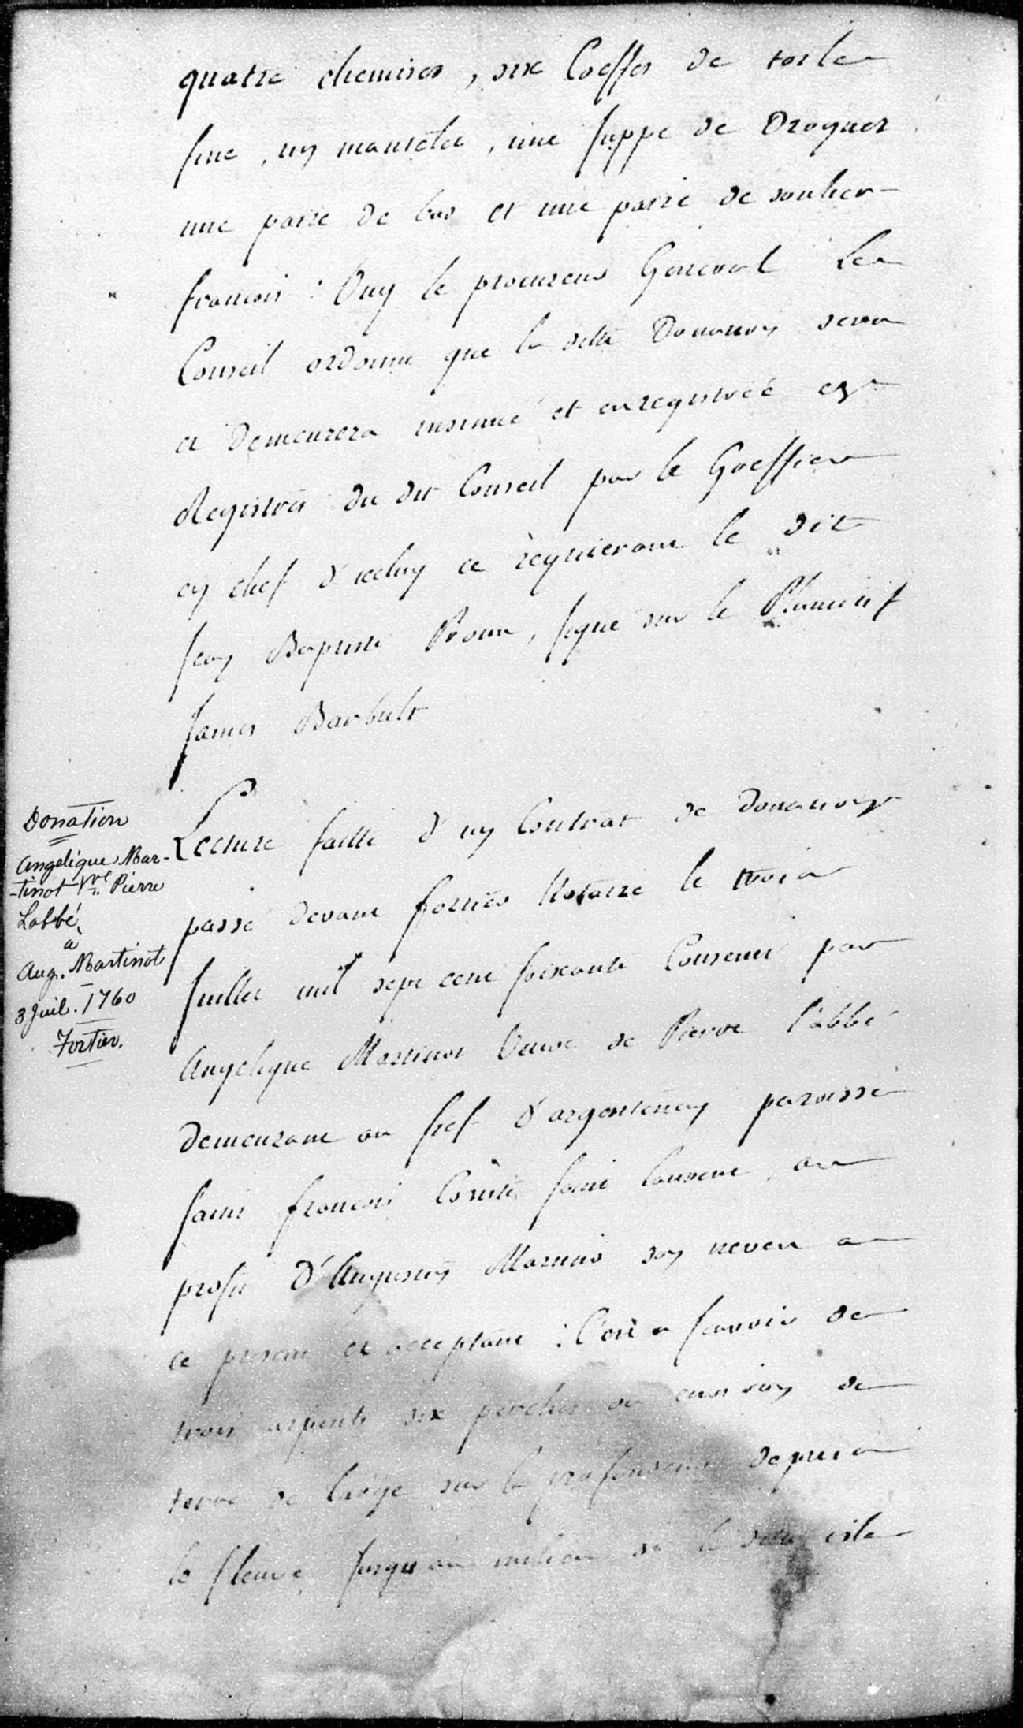 quatre chemises, six Coeffes de toile
fine, un mantelet, une juppe de Droguet
une paire de bas et une paire de soulier
francois : Ouy le procureur General Le
Conseil ordonne que la ditte Donation sera
et Demeurera insinué et enregistrée es
Registres du dit Conseil par le Greffier
en chef d'iceluy ce requierant le dit
Jean Baptiste Proux, signé sur le Plumitif
James Barbult
Donation
Angelique Mar-
-tinot Vve Pierre
Labbé,
à
Aug. Martinot
3 Juil. 1760
Fortier.
Lecture faitte d'un Contrat de Donation
passé devant fortier Notaire le trois
Juillet mil sept cent soixante Consenti par
Angelique Martinot Veuve de Pierre l'abbé
demeurant au fief d'argentenay paroisse
saint francois Comté saint laurent au
profit D'Augustin Martino son neveu a
ce present et acceptant : C'est a scavoir de
trois arpents six perches ou environ de
terre de large sur la profondeur depuis
le fleuve jusqu'au milieu de la ditte isle